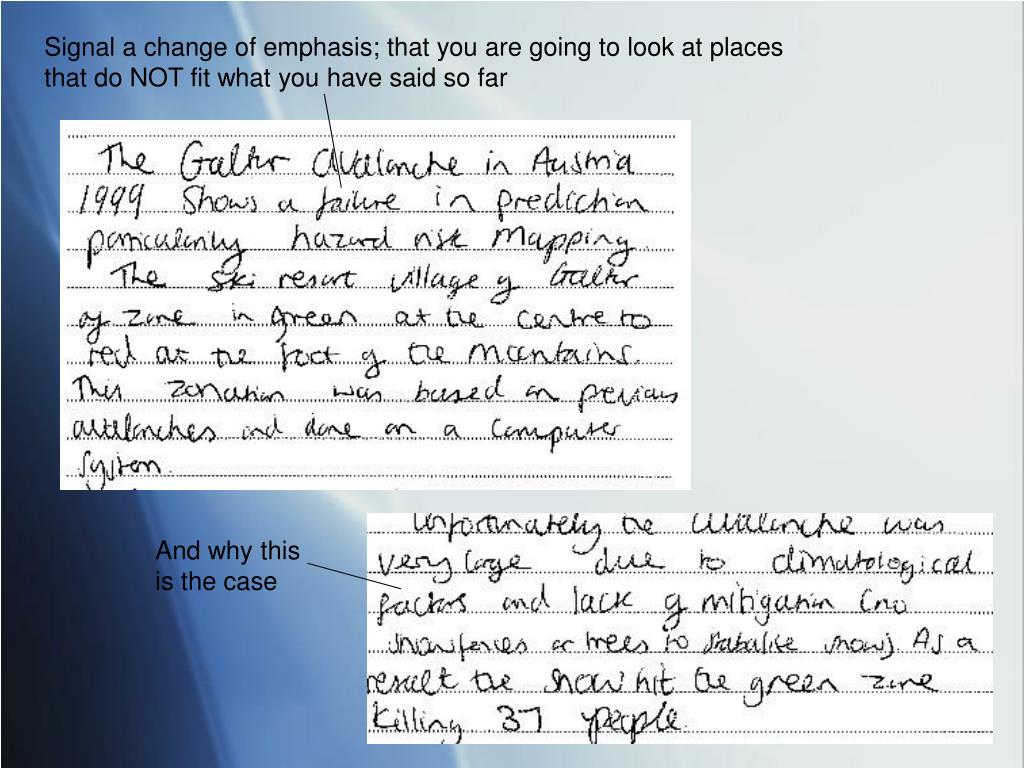 Signal a change of emphasis; that you are going to look at places
that do NOT fit what you have said so far
The Galtur Avalanche in Austria
1999 Shows a failure in prediction
particularly hazard risk Mapping.
The ski resort village of Galtur
of zone in green at the centre to
red at the foot of the mountains.
This zonation was based on previous
avalanches and done on a computer
System.
Unfortunately the avalanche was
And why this
is the case
very large due to climatological
factors and lack of mitigation (no
snowfences or trees to stabalise snow) As a
result the snow hit the green zone
killing 37 people.